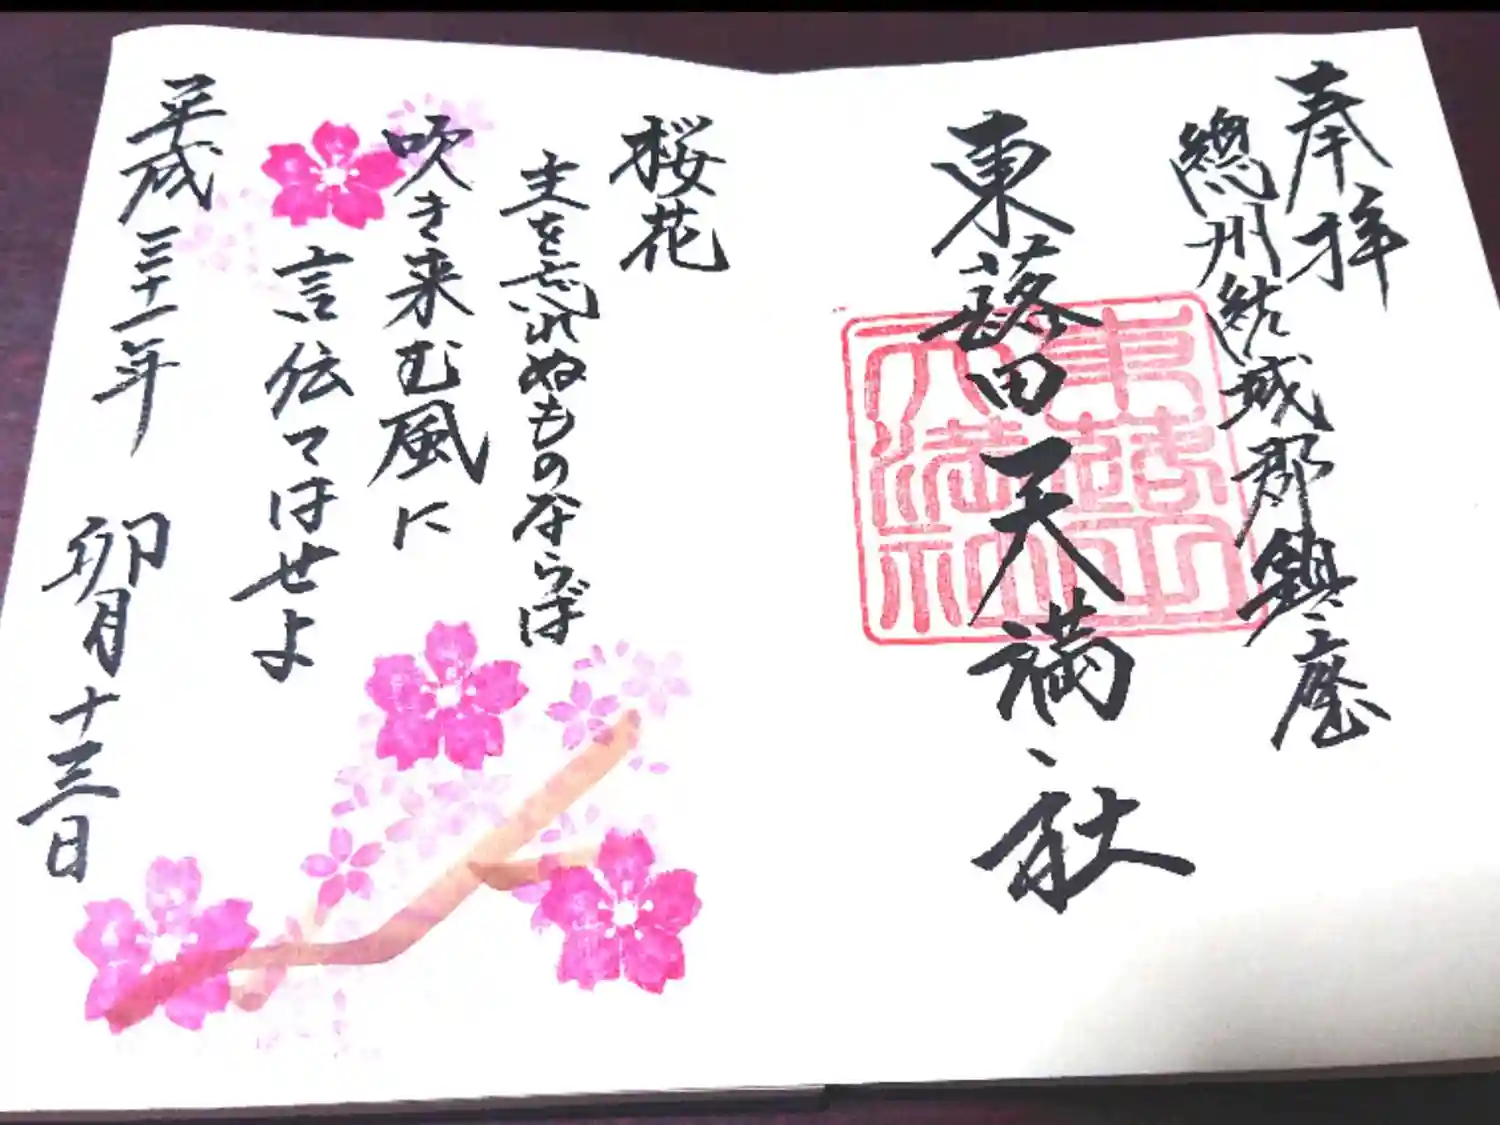 奉拝
總州結城郡鎮座
東蕗田天満社
桜花
主を忘れぬものならば
吹き来む風に
言伝てはせよ
平成三十一年 卯月十三日